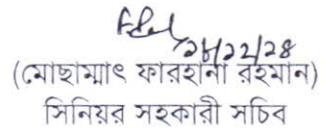 ২৮/১১/২৪
(মোছাম্মাৎ ফারহানা রহমান)
সিনিয়র সহকারী সচিব